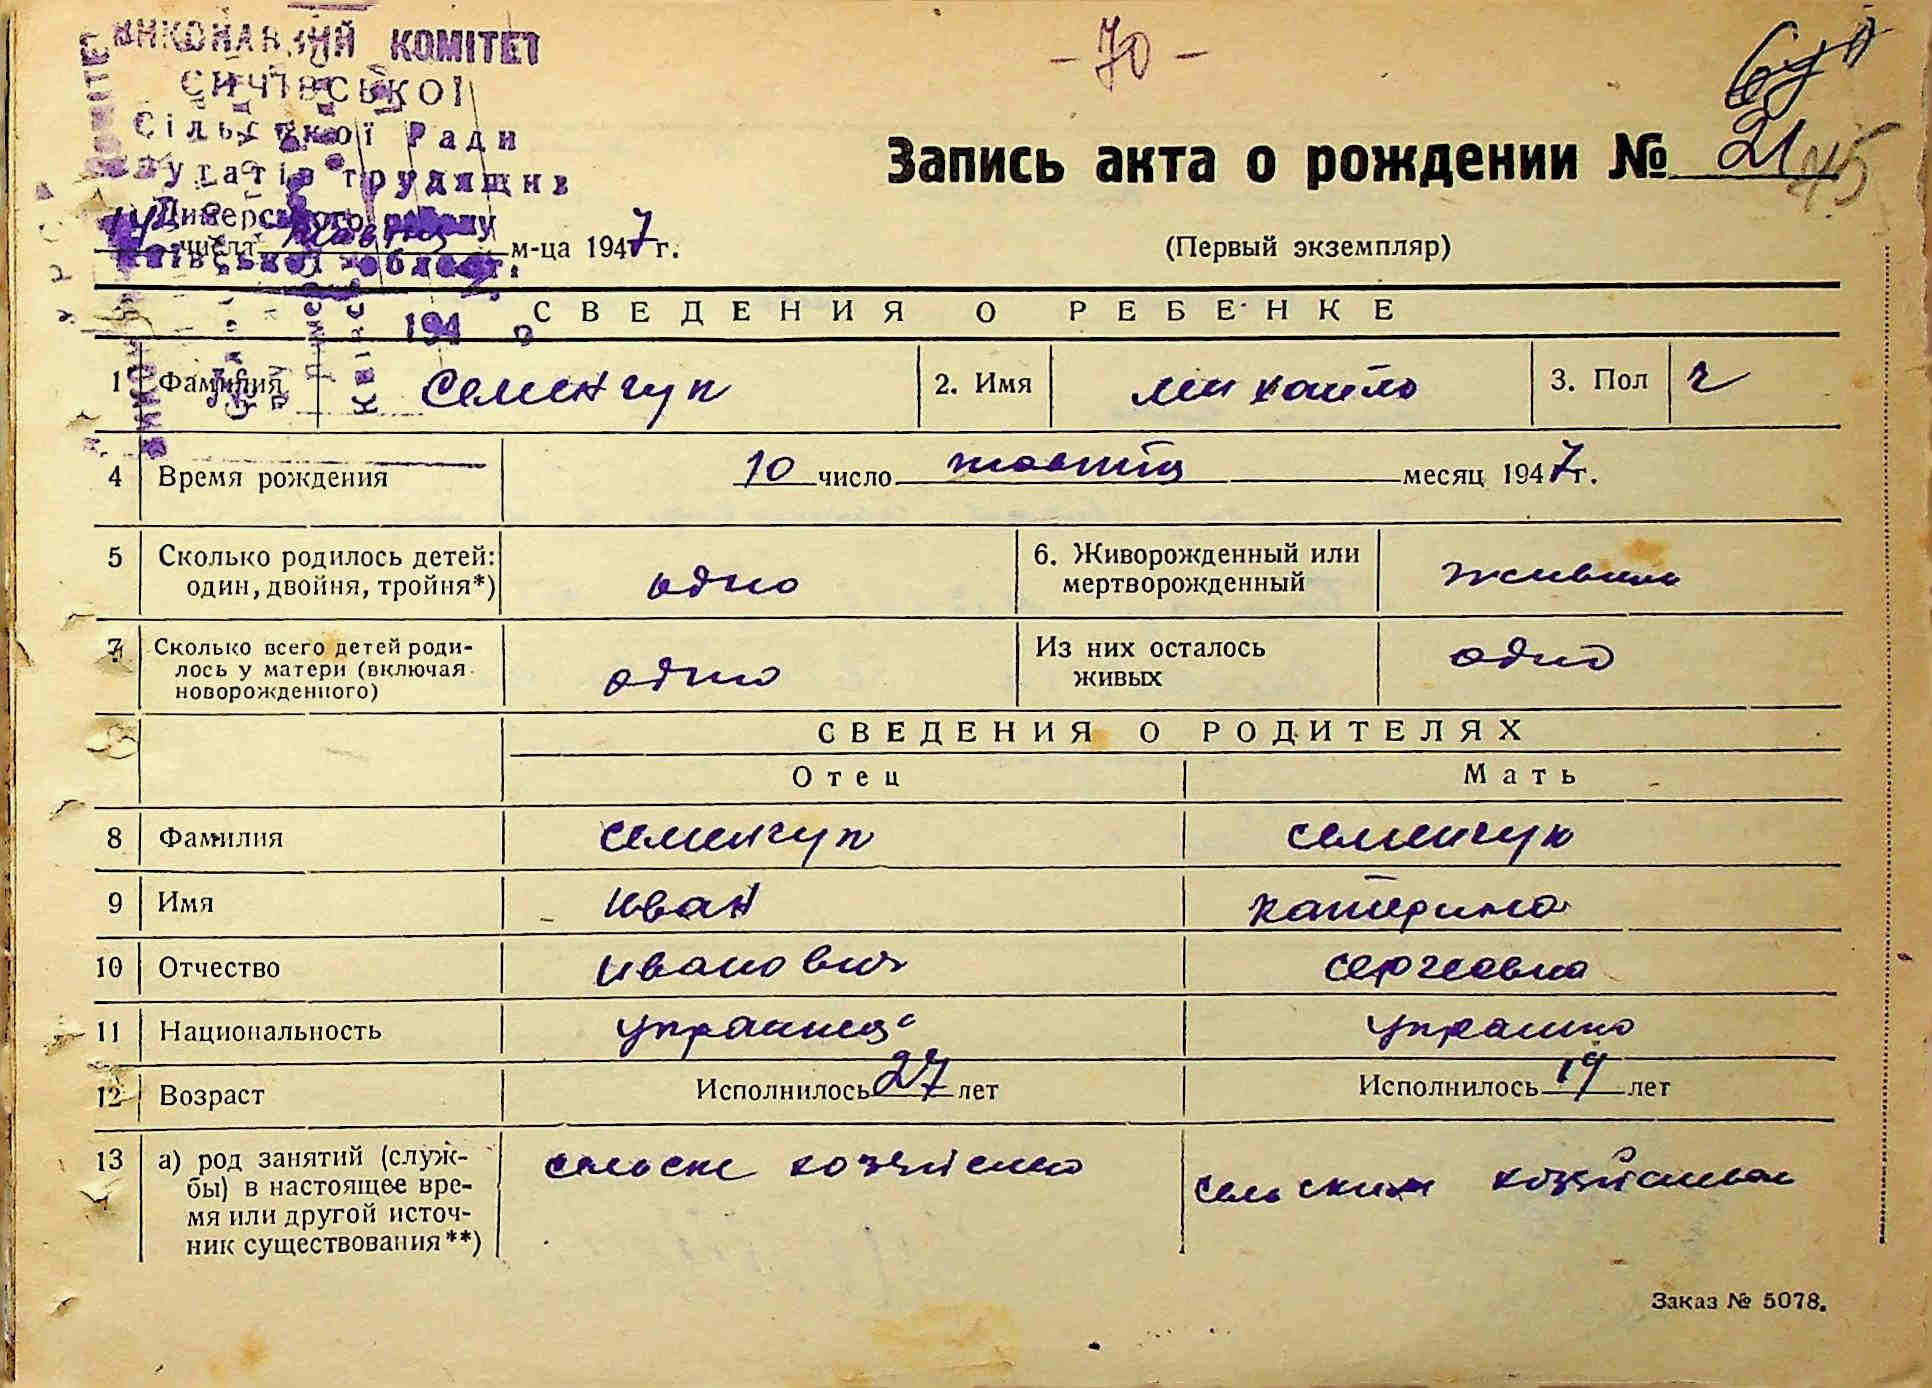 - 70 -
ВИКОНАВЧИЙ КОМІТЕТ
СИЧІВСЬКОЇ
Сільської Ради
депутатів трудящих
Димерського району
Київської області.
194
Запись акта о рождении № 21
(Первый экземпляр)
14 числа жовтня м-ца 1947 г.
СВЕДЕНИЯ О РЕБЕНКЕ
1 Фамилия Семенчук 2. Имя Михайло 3. Пол ч
4 Время рождения 10 число жовтня месяц 1947 г.
5 Сколько родилось детей: один, двойня, тройня*) одно 6. Живорожденный или мертворожденный
7 Сколько всего детей родилось у матери (включая новорожденного) одно Из них осталось живых одно
СВЕДЕНИЯ О РОДИТЕЛЯХ
Отец Мать
8 Фамилия Семенчук Семенчук
9 Имя Иван Катерина
10 Отчество Иванович Сергеевна
11 Национальность украинец
12 Возраст Исполнилось 27 лет Исполнилось 19 лет
13 а) род занятий (службы) в настоящее время или другой источник существования**)
Заказ № 5078.